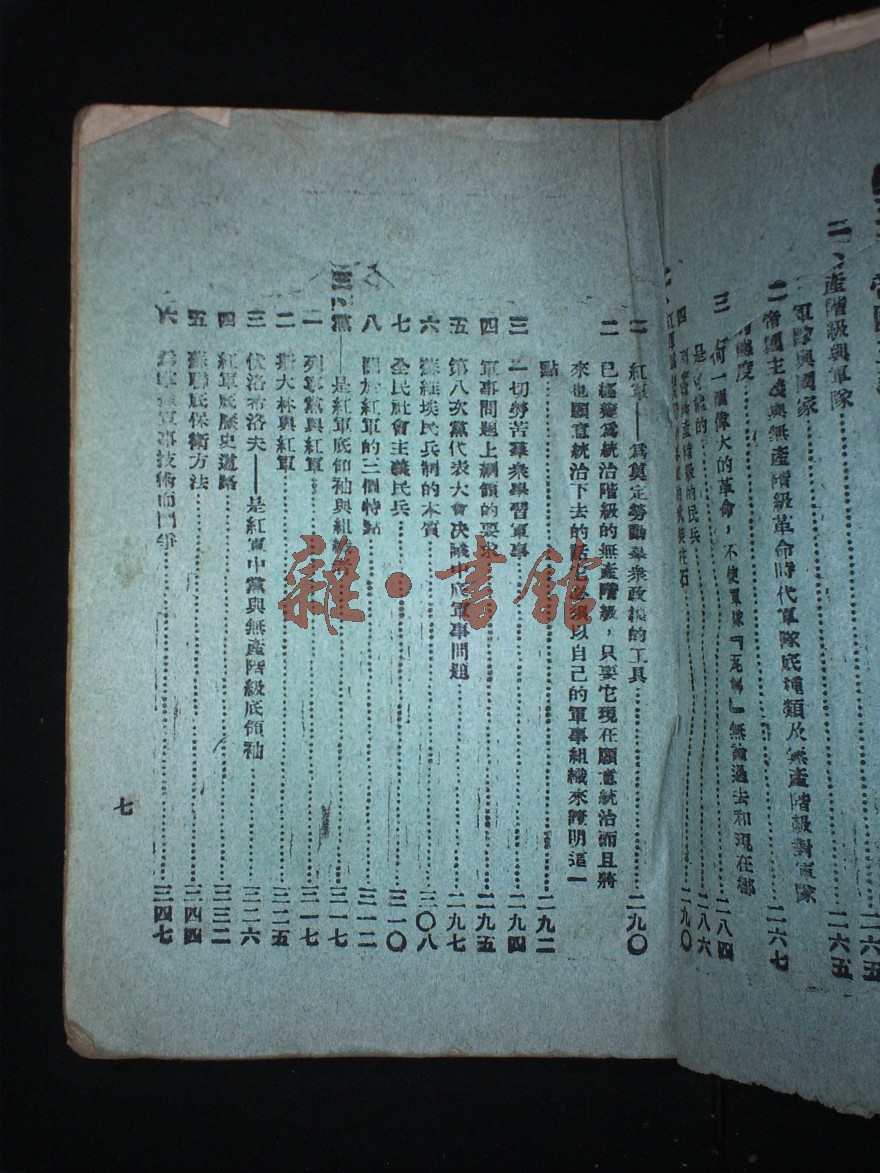 二、無產階級與軍隊……二六五
軍隊與國家
二 帝國主義與無產階級革命時代軍隊底種類及無產階級對軍隊
態度……二六七
三 何一個偉大的革命，不使軍隊『瓦解』無論過去和現在都
是 能的……二八四
四 階級的民兵……二八六
柱石……二九〇
一 紅軍——為奠定勞動羣衆政權的工具……二九〇
二 已經變為統治階級的無產階級，只要它現在願意統治而且將
來也願意統治下去的話它必須以自己的軍事組織來證明這一
點……二九二
三 一切勞苦羣衆學習軍事……二九四
四 軍事問題上綱領的要求……二九五
五 第八次黨代表大會決議中底軍事問題……二九七
六 蘇維埃民兵制的本質……三〇八
七 全民社會主義民兵……三一〇
八 關於紅軍的三個特點……三一二
三、黨——是紅軍底領袖與組織者……三一七
一 列寧黨與紅軍……三一七
二 斯大林與紅軍……三二五
三 伏洛希洛夫——是紅軍中黨與無產階級底領袖……三二六
四 紅軍底歷史道路……三三二
五 蘇聯底保衛方法……三四四
六 為掌握軍事技術而鬥爭……三四七
七
雜·書館